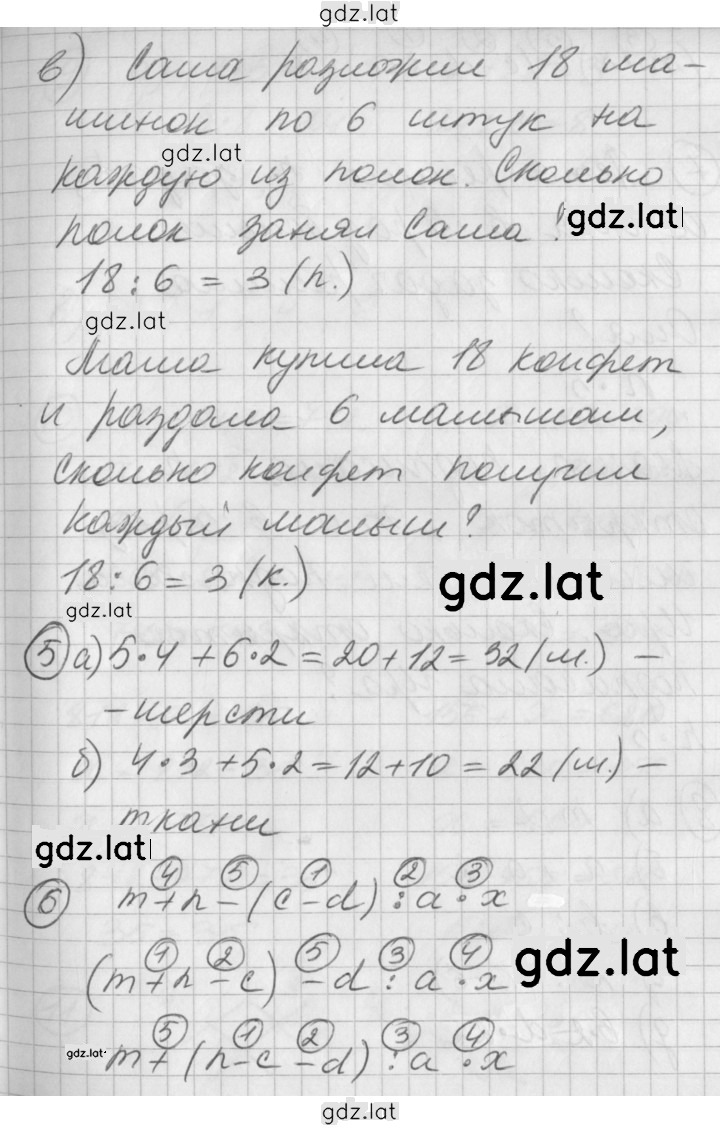 gdz.lat
в) Саша разложил 18 ма-
шинок по 6 штук на
gdz.lat
каждую из полок. Сколько
полок занял Саша?
gdz.lat
18:6 = 3 (п.)
gdz.lat
Маша купила 18 конфет
и раздала 6 малышам,
сколько конфет получил
каждый малыш?
18:6 = 3 (к.)
gdz.lat
gdz.lat
5 а) 5·4 + 6·2 = 20 + 12 = 32 (м.) –
– шерсти
б) 4·3 + 5·2 = 12 + 10 = 22 (м.) –
ткани
gdz.lat
4 5 1 2 3
6 m + n – (c – d) : a · x
1 2 5 3 4
(m + n – c) – d : a · x
gdz.lat
5 1 2 3 4
m + (n – c – d) : a · x
gdz.lat
gdz.lat